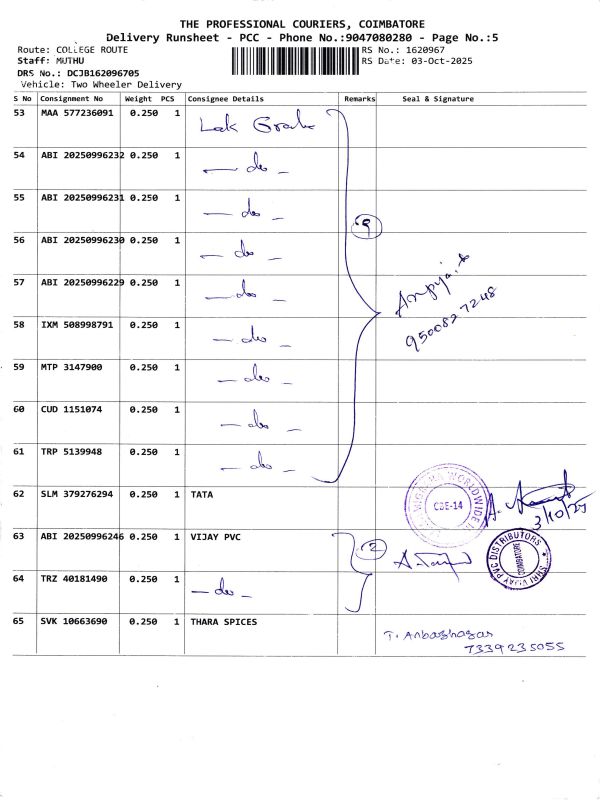 THE PROFESSIONAL COURIERS, COIMBATORE
Delivery Runsheet - PCC - Phone No.:9047080280 - Page No.:5
Route: COLLEGE ROUTE RS No.: 1620967
Staff: MUTHU RS Date: 03-Oct-2025
DRS No.: DCJB162096705
Vehicle: Two Wheeler Delivery
S No Consignment No Weight PCS Consignee Details Remarks Seal & Signature
53 MAA 577236091 0.250 1
54 ABI 20250996232 0.250 1 — do —
55 ABI 20250996231 0.250 1 — do —
9
56 ABI 20250996230 0.250 1 — do —
57 ABI 20250996229 0.250 1 — do —
9500827248
58 IXM 508998791 0.250 1 — do —
59 MTP 3147900 0.250 1 — do —
60 CUD 1151074 0.250 1 — do —
61 TRP 5139948 0.250 1 — do —
62 SLM 379276294 0.250 1 TATA
WORLDWIDE
CBE-14
3/10/25
63 ABI 20250996246 0.250 1 VIJAY PVC
2
SHRI VIJAY PVC DISTRIBUTORS
COIMBATORE
64 TRZ 40181490 0.250 1 — do —
65 SVK 10663690 0.250 1 THARA SPICES
T. Anbazhagan
7339235055